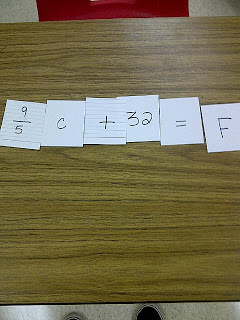 9/5 c + 32 = F